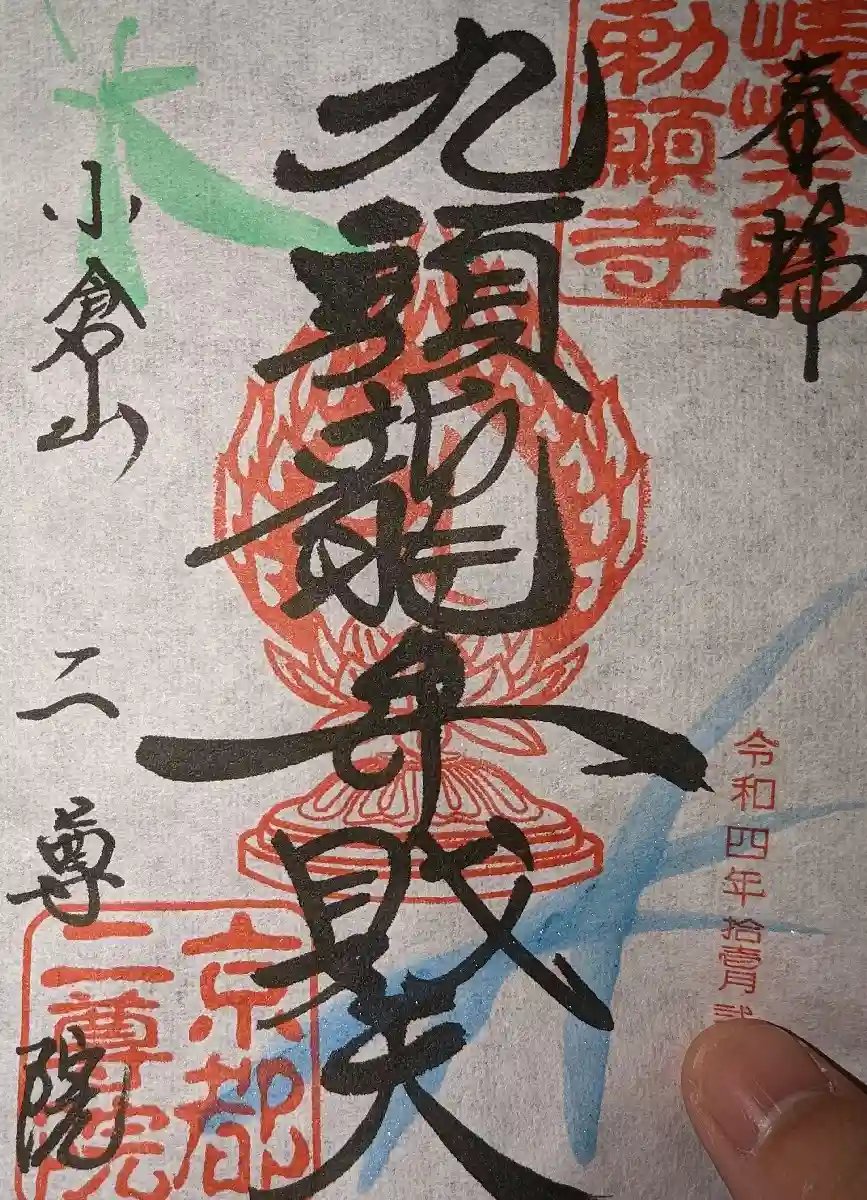 奉拝
嵯峨天皇
勅願寺
令和四年拾壹月
九頭龍弁財天
小倉山 二尊院
京都
二尊院